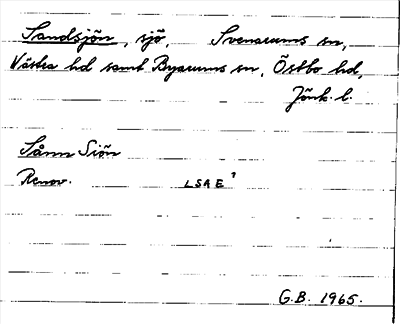 Sandsjön, sjö, Svenarums sn,
Västra hd samt Byarums sn, Östbo hd,
Jönk. l.
Sånn Siön
Renov. LSA E?
G.B. 1965.